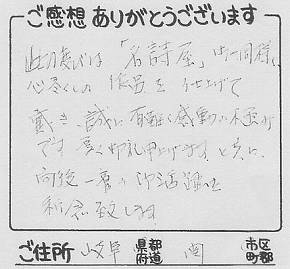 ご感想ありがとうございます
此の度は「名詩屋」
心尽くしの作品を仕上げて
戴き、誠に有難く感動
です。厚く御礼申上げます。と共に、
向後一層の御活躍を
祈念致します
ご住所 岐阜 都道府県 関 市区町郡